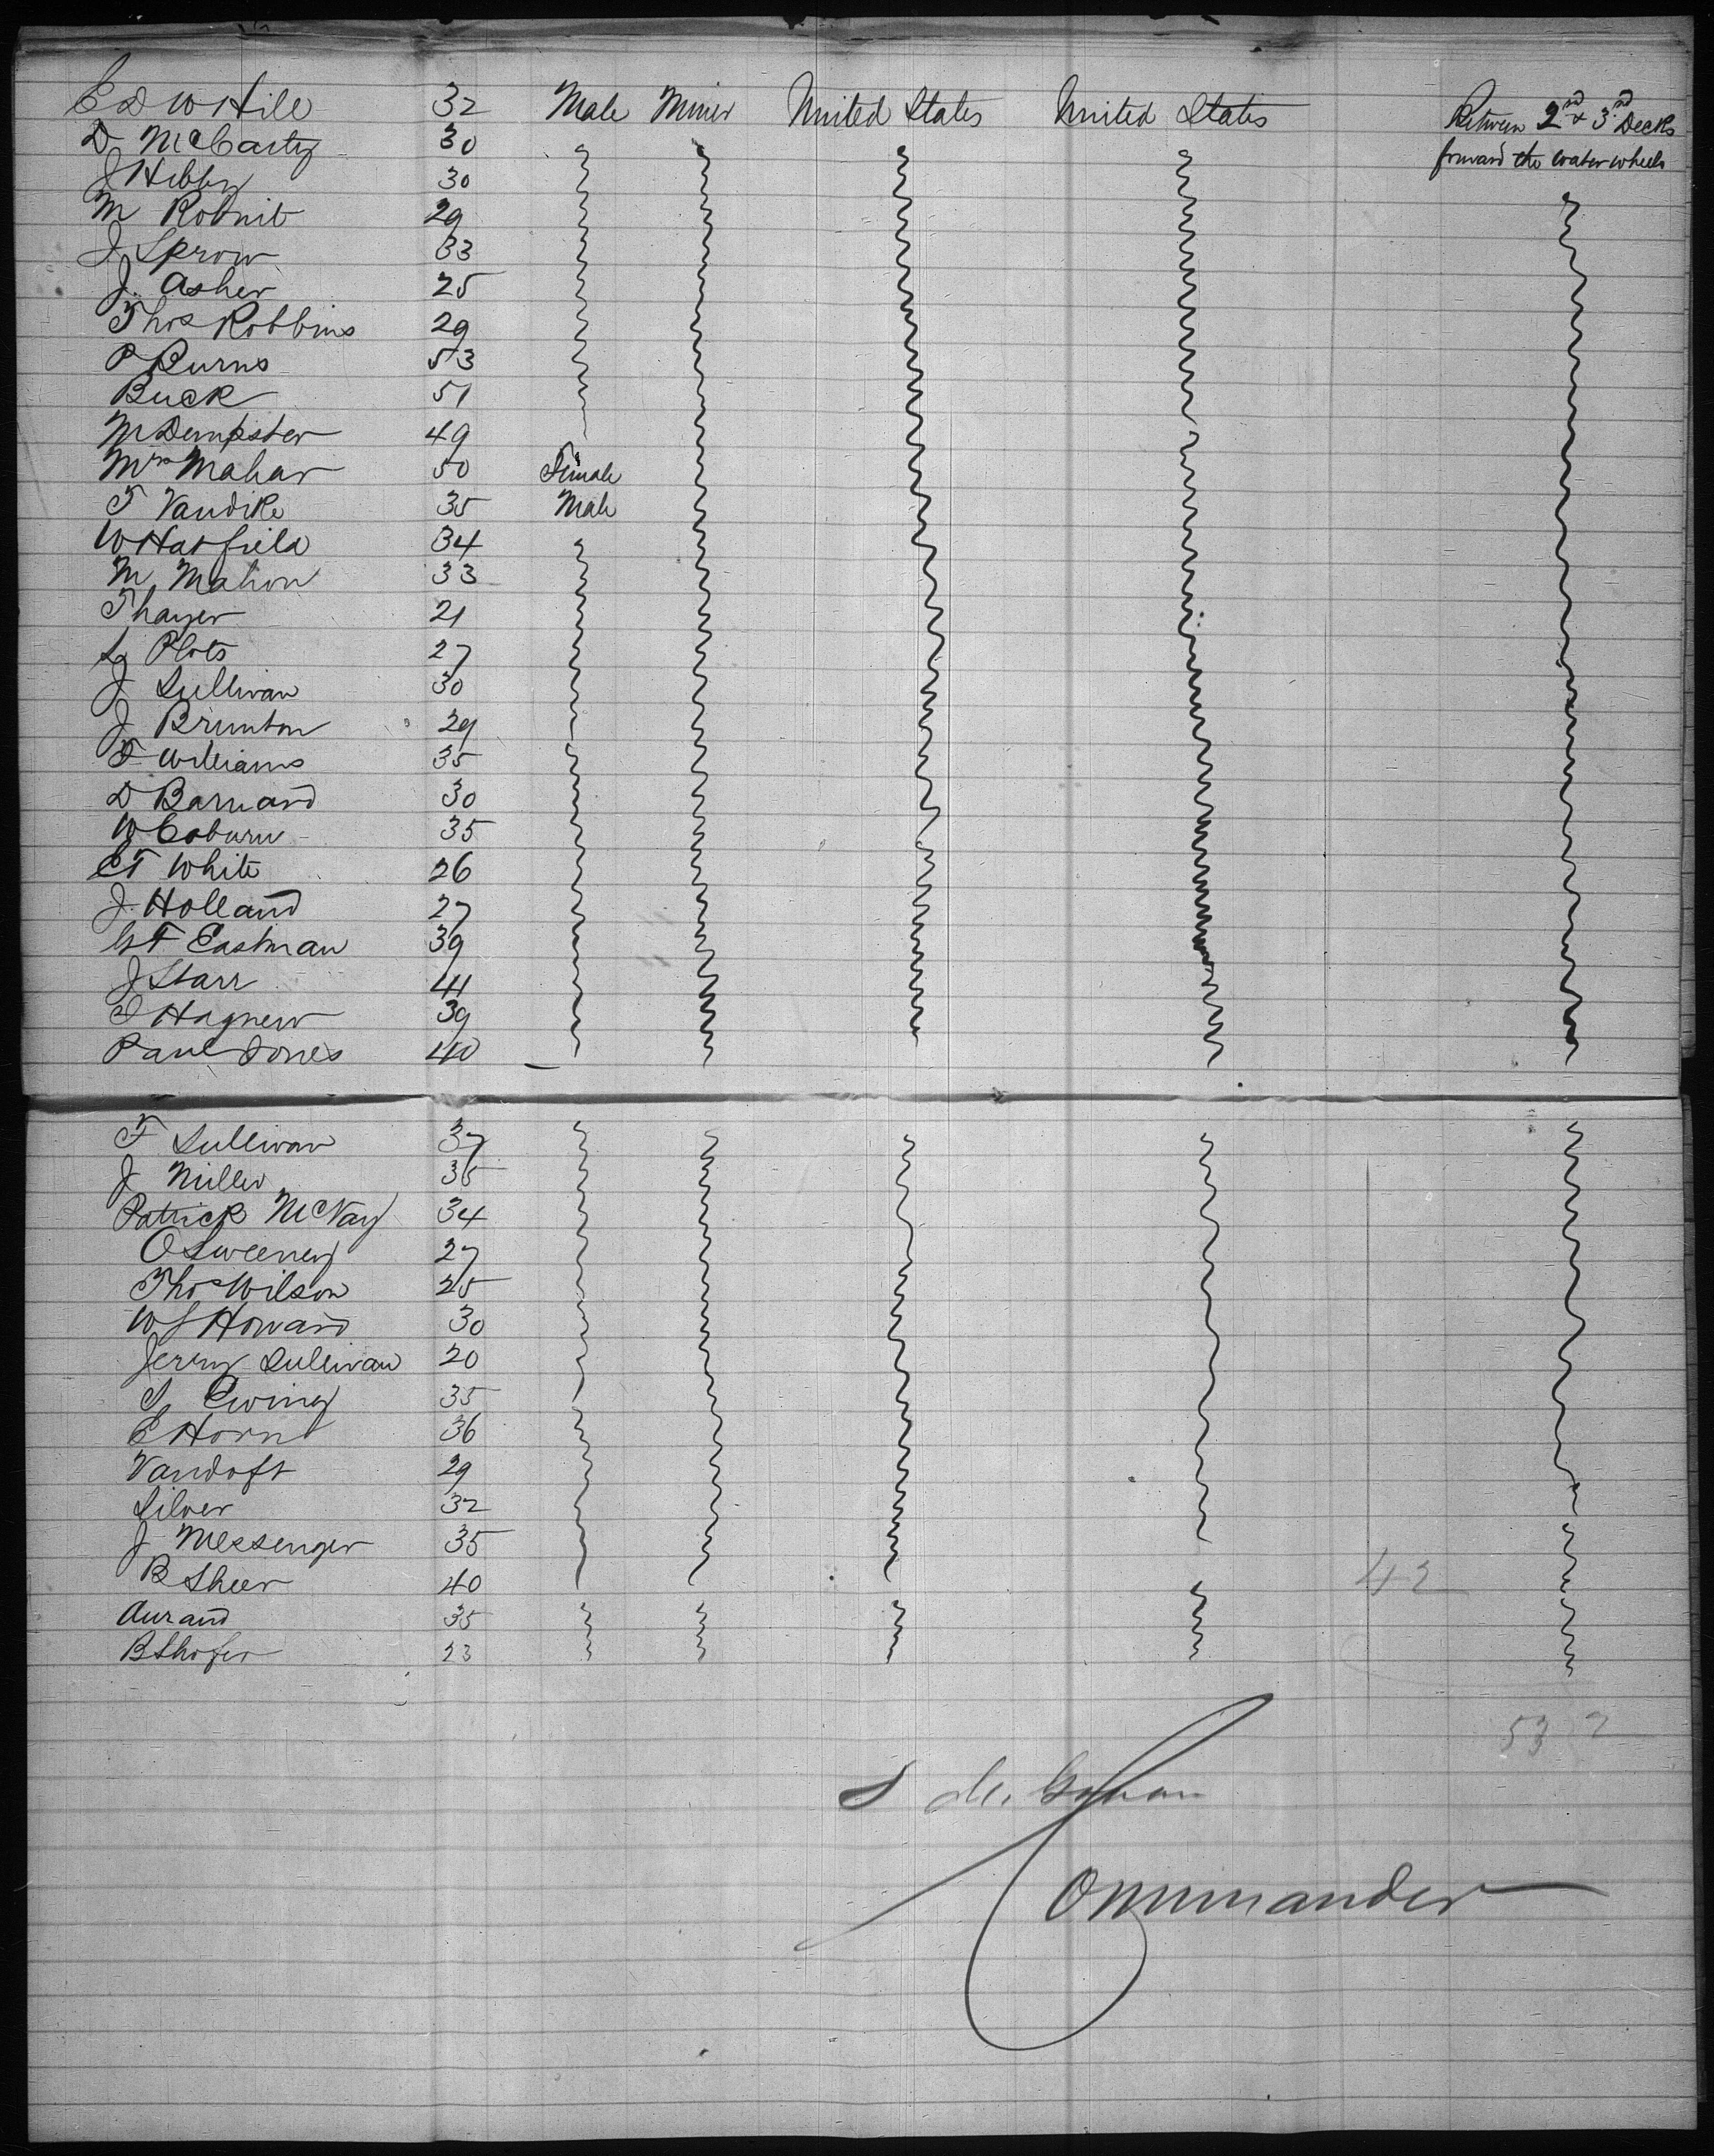 E D W Hill 32 Male Miner United States United States Between 2nd & 3rd Decks
forward the water wheels
D McCarty 30
J Hibby 30
M 29
J Sprow 33
J. Asher 25
Thos Robbins 29
P Burns 53
Buck 51
M Dempster 49
Mrs Mahar 50 Female
T Vandike 35 Male
W Hatfield 34
M Mahon 33
Thayer 21
Plots 27
J Sullivan 30
J Brunton 29
F Williams 35
D Barnard 30
W Coburn 35
C T White 26
J. Holland 27
G F Eastman 39
J Starr 41
Hagnew 39
Paul Jones 40
F Sullivan 37
J Miller 35
Patrick McVay 34
O Sweeney 27
Thos Wilson 25
W S Howard 30
Jerry Sullivan 20
S. Ewing 35
E Horn 36
Vandoft 29
Silver 32
J Messenger 35
B Sheer 40
42
Aurand 35
B Shofer 23
53
Commander